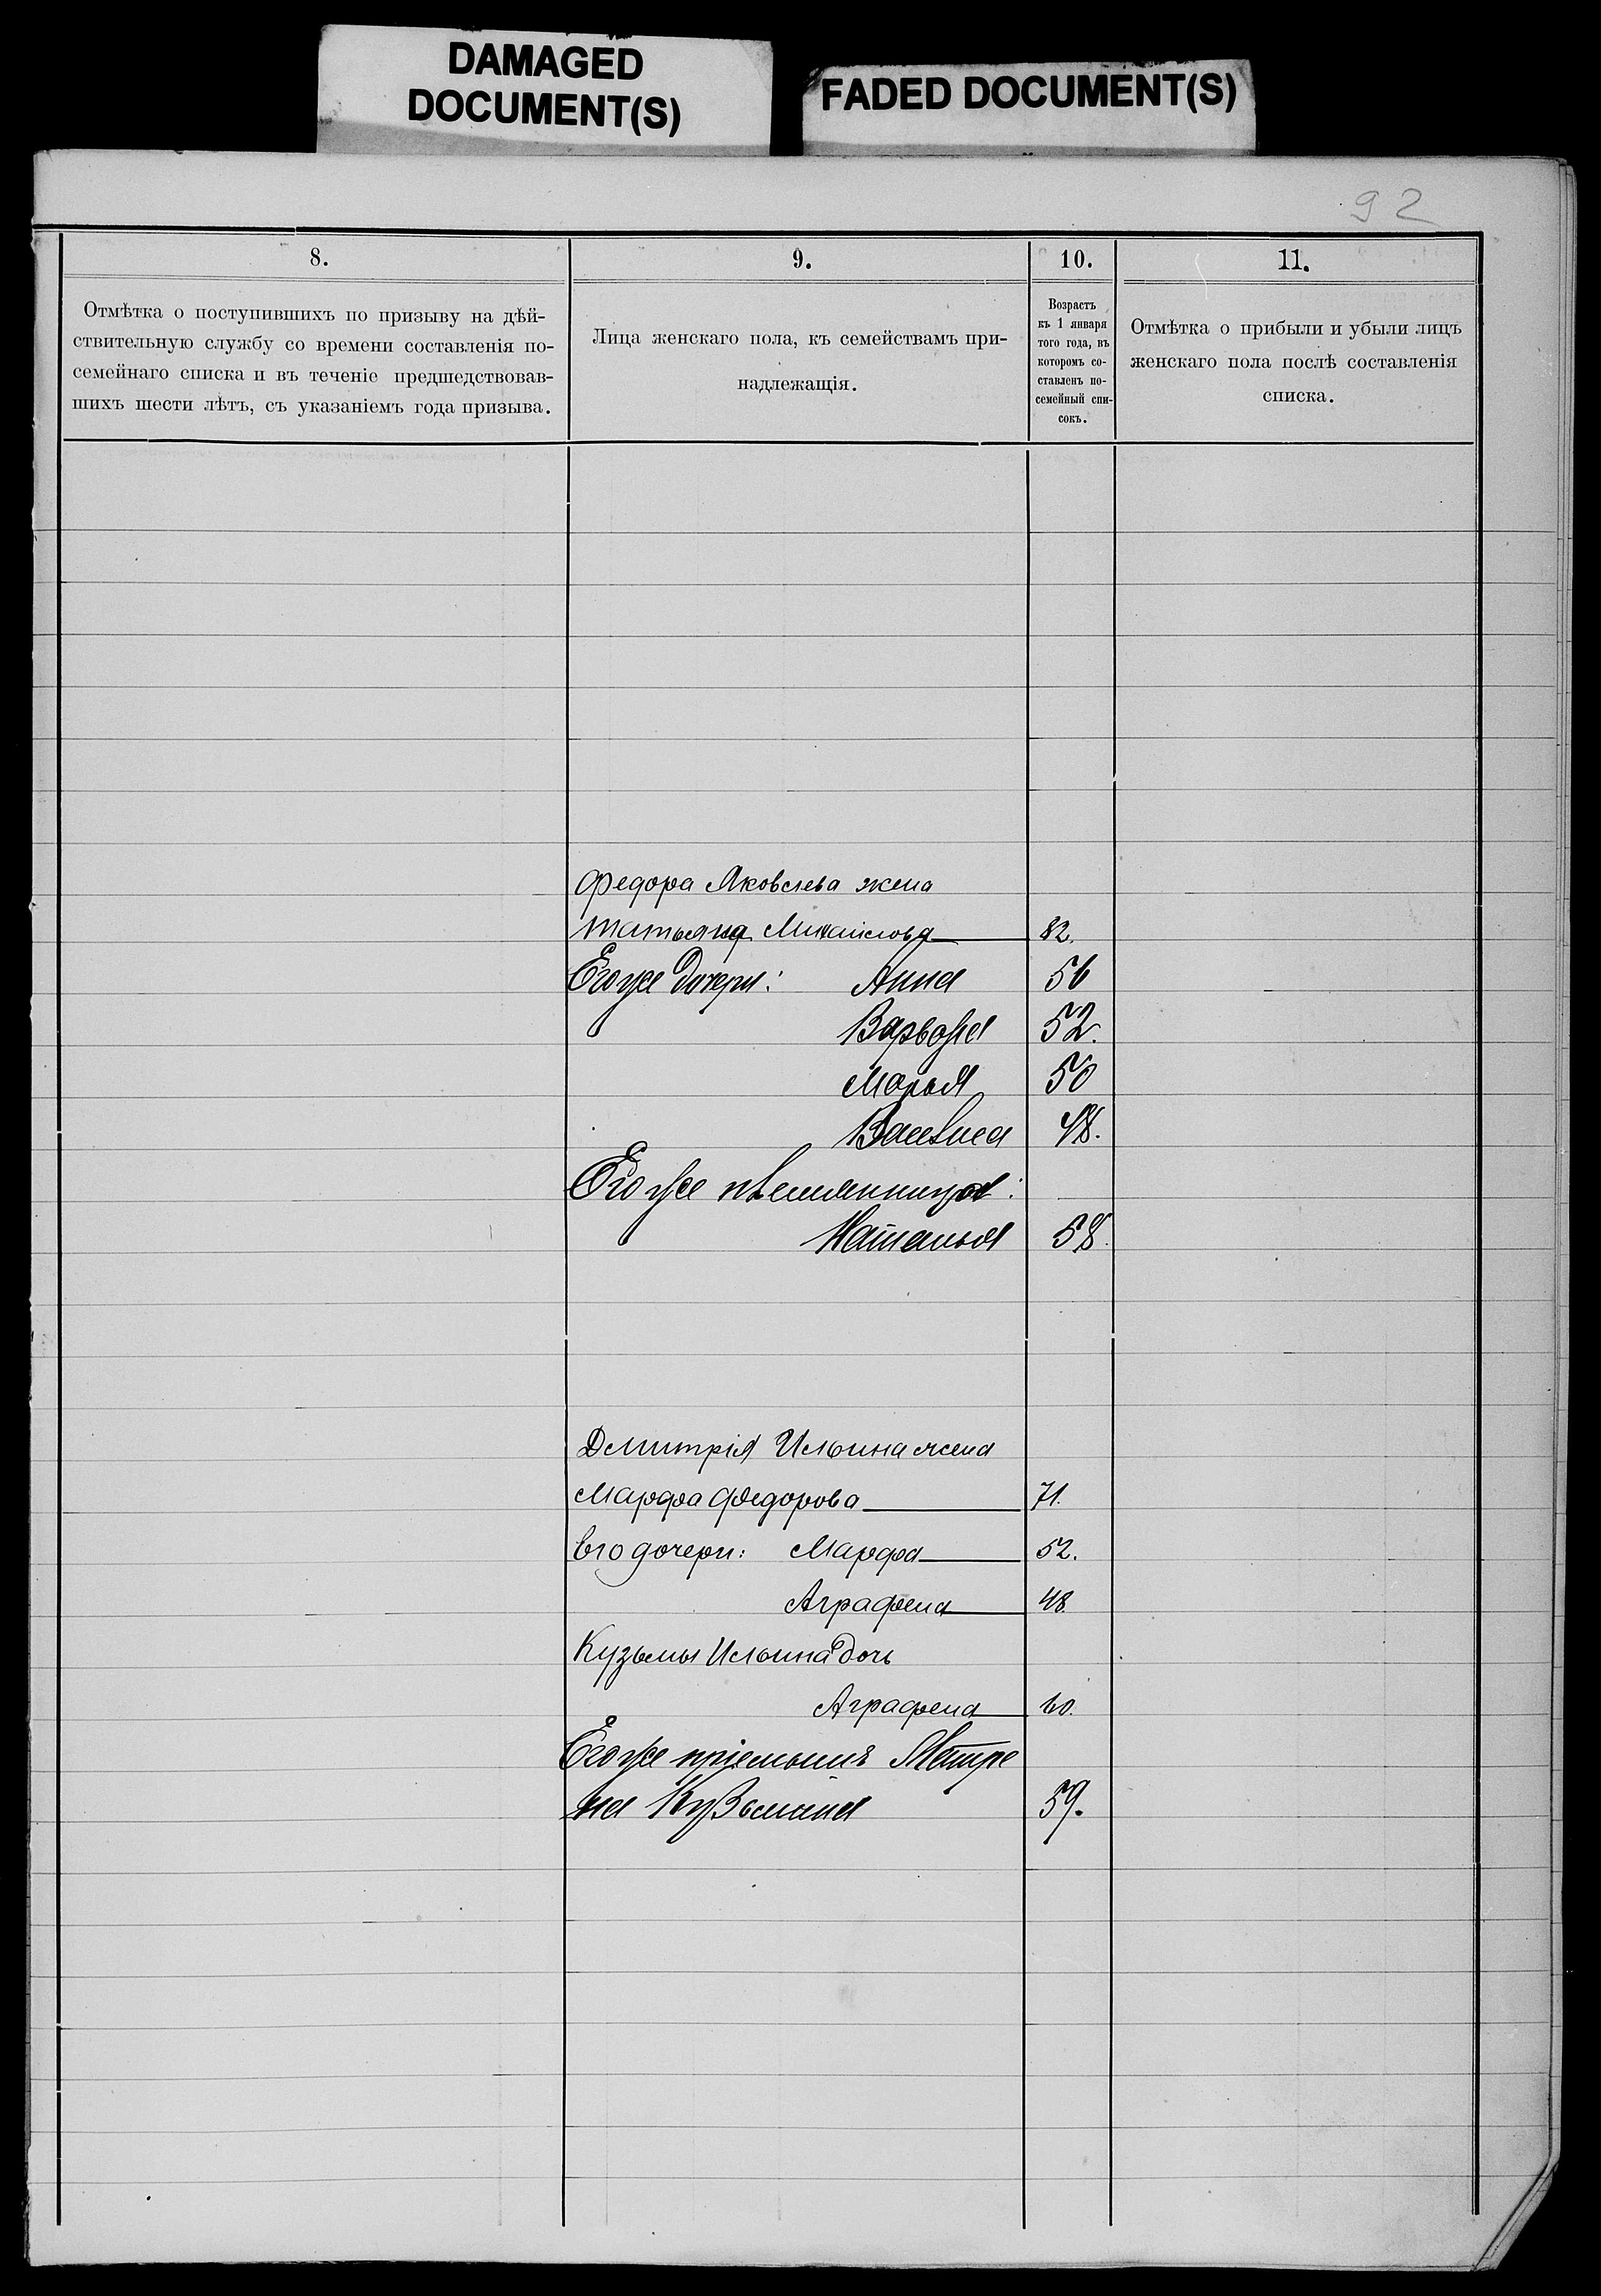 DAMAGED
DOCUMENT(S)
FADED DOCUMENT(S)
92
8.
9.
10.
11.
Отмѣтка о поступившихъ по призыву на дѣй-
ствительную службу со времени составленія по-
семейнаго списка и въ теченіе предшедствовав-
шихъ шести лѣтъ, съ указаніемъ года призыва.
Лица женскаго пола, къ семействамъ при-
надлежащія.
Возрастъ
къ 1 января
того года, въ
которомъ со-
ставленъ по-
семейный спи-
сокъ.
Отмѣтка о прибыли и убыли лицъ
женскаго пола послѣ составленія
списка.
Федора Яковлева жена
Татьяна Михайлова 82.
Его же дочери: Анна 56
Варвара 52.
Марья 50
Васѣиса 48.
Его же племянница:
Наталья 58.
Дмитрія Ильина жена
Марфа Федорова 71.
Его дочери: Марфа 52.
Аграфена 48.
Кузьмы Ильина дочь
Аграфена 60.
Его же пріемышъ Матре
на Кузьмина 59.